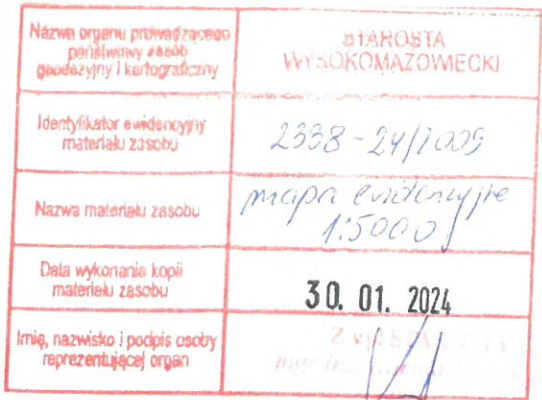 Nazwa organu prowadzącego
państwowy zasób
geodezyjny i kartograficzny
STAROSTA
WYSOKOMAZOWIECKI
Identyfikator ewidencyjny
materiału zasobu
2338-24/2009
Nazwa materiału zasobu
mapa ewidencyjne
1:5000
Data wykonania kopii
materiału zasobu
30. 01. 2024
Imię, nazwisko i podpis osoby
reprezentującej organ
Z up. STAROSTY
mgr inż.